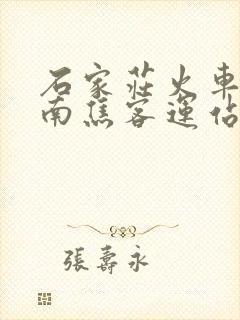 石家莊火車
南焦客運佔
張壽永